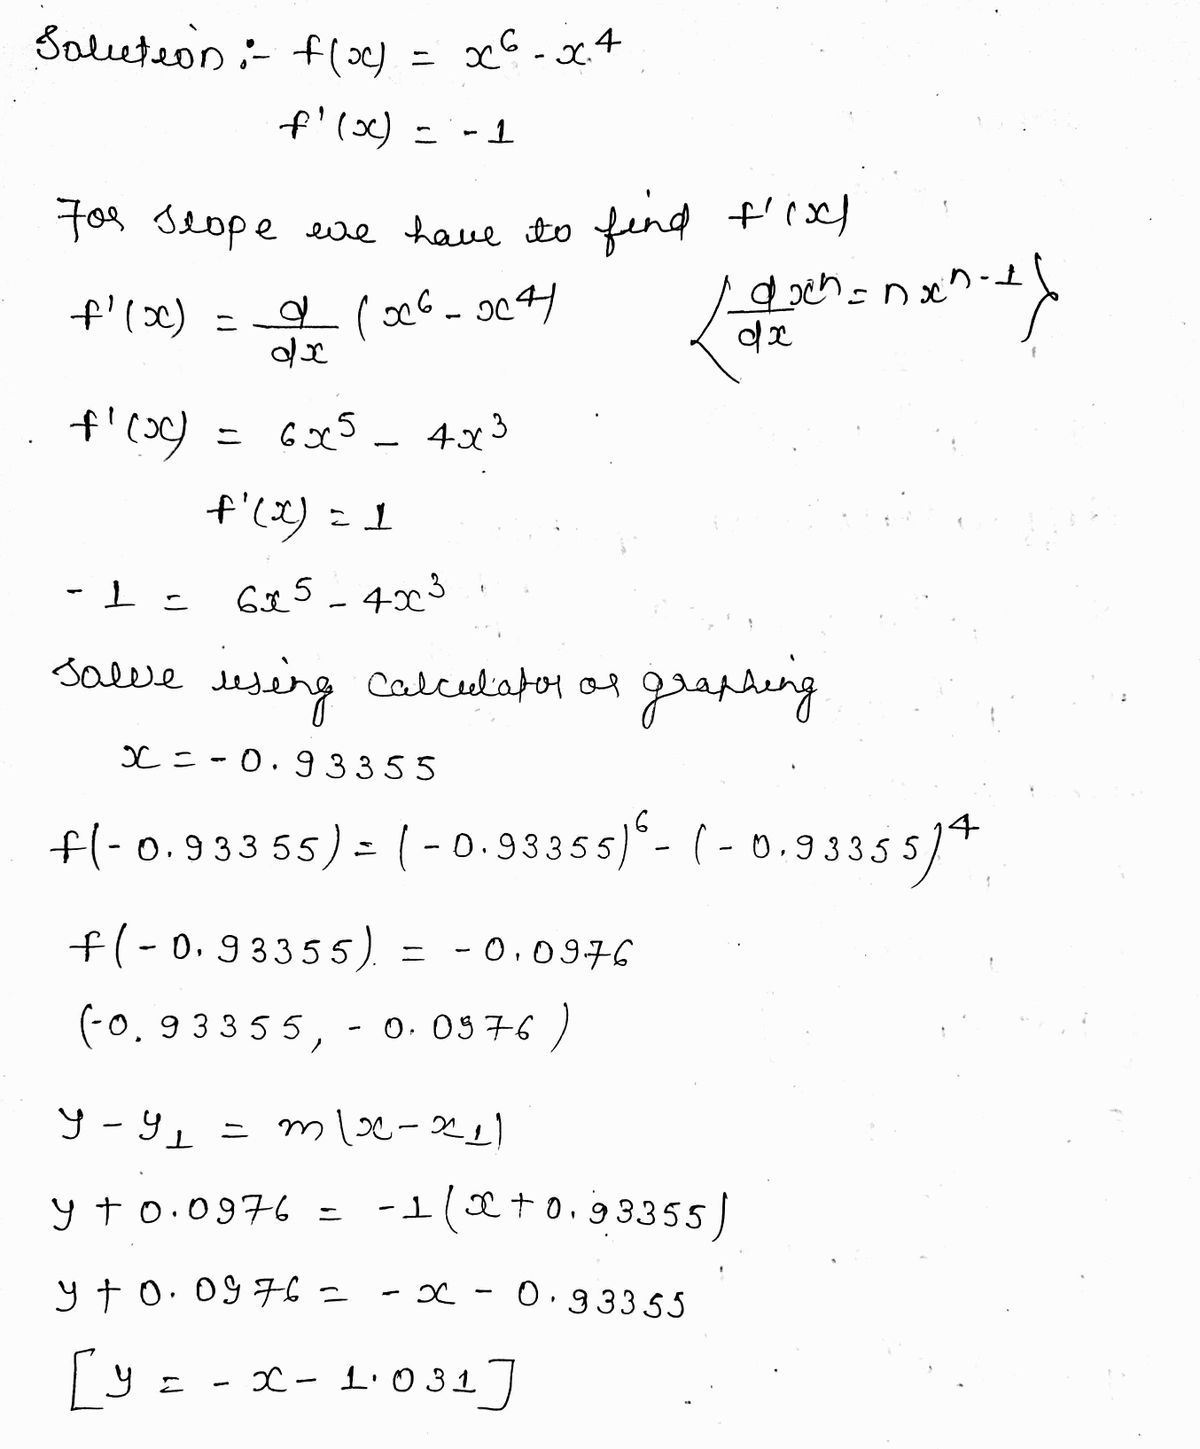 Solution :- f(x) = x^6 - x^4
f'(x) = -1
For slope we have to find f'(x)
f'(x) = d/dx (x^6 - x^4) {d/dx x^n = n x^n-1}
f'(x) = 6x^5 - 4x^3
f'(x) = 1
-1 = 6x^5 - 4x^3
Solve using calculator or graphing
x = -0.93355
f(-0.93355) = (-0.93355)^6 - (-0.93355)^4
f(-0.93355) = -0.0976
(-0.93355, -0.0976)
y - y1 = m(x - x1)
y + 0.0976 = -1(x + 0.93355)
y + 0.0976 = -x - 0.93355
[y = -x - 1.031]